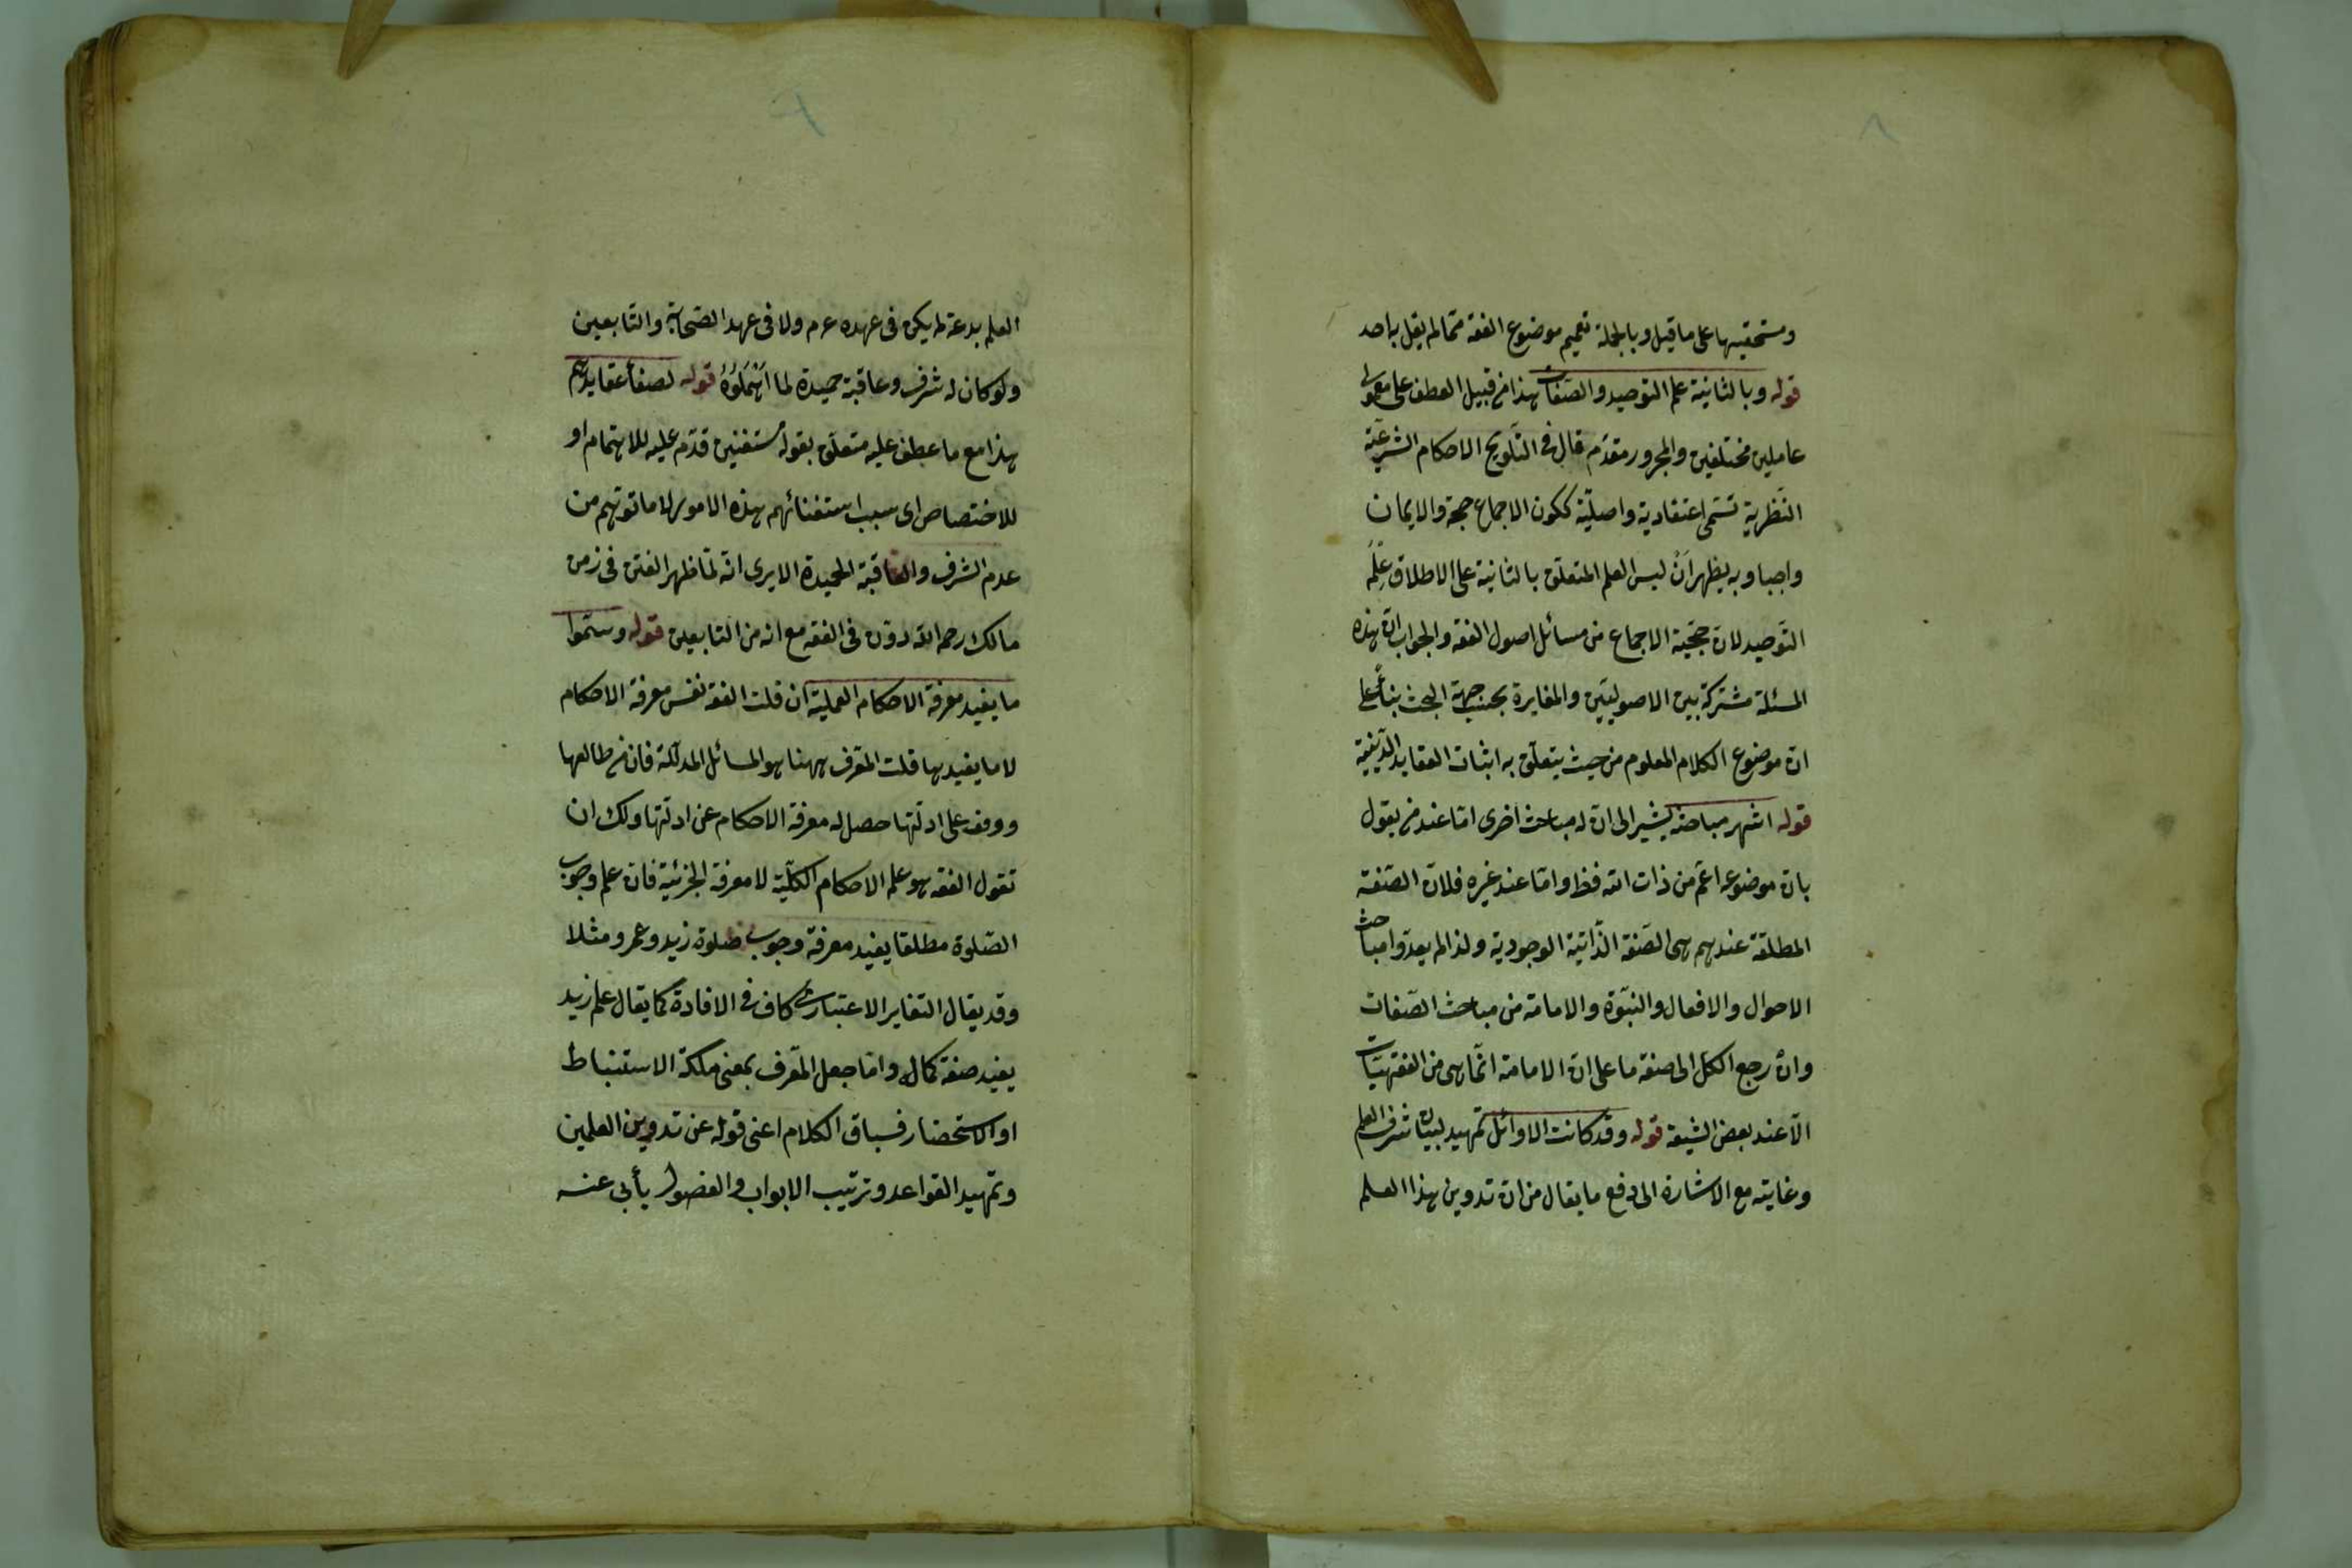 ومستحقيها على ما قيل وبالجملة تعميم موضوع الفقه مما لم يقل به احد
قوله وبالثانية علم التوحيد والصفات هذا من قبيل العطف على معمولى
عاملين مختلفين والمجرور مقدم قال فى التلويح الاحكام الشرعية
النظرية تسمى اعتقادية واصلية ككون الاجماع حجة والايمان
واجبا وبه يظهر ان ليس العلم المتعلق بالثانية على الاطلاق علم
التوحيد لان حجية الاجماع من مسائل اصول الفقه والجواب ان هذه
المسئلة مشتركة بين الاصوليين والمغايرة بحسب جهة البحث بناء على
ان موضوع الكلام المعلوم من حيث يتعلق به اثبات العقايد الدينية
قوله اشهر مباحثه يشير الى ان له مباحث اخرى اما عند من يقول
بان موضوعه اعم من ذات الله فظ واما عند غيره فلان الصفة
المطلقة عندهم هى الصفة الذاتية الوجودية ولذا لم يعدوا مباحث
الاحوال والافعال والنبوة والامامة من مباحث الصفات
وان رجع الكل الى صفة ما على ان الامامة انما هى من الفقهيات
الا عند بعض الشيعة قوله وقد كانت الاوائل تمهيد لبيان شرف العلم
وغايته مع الاشارة الى دفع ما يقال من ان تدوين هذا العلم
العلم بدعة لم يكن فى عهده عم ولا فى عهد الصحابة والتابعين
ولو كان له شرف وعاقبة حميدة لما اهملوه قوله لصفاء عقايدهم
هذا مع ما عطف عليه متعلق بقوله مستغنين قدم عليه للاهتمام او
للاختصاص اى سبب استغنائهم هذه الامور لا ما توهم من
عدم الشرف والعاقبة الحميدة الا يرى انه لما ظهر الفتن فى زمن
مالك رحمه الله دون فى الفقه مع انه من التابعين قوله وسموا
ما يفيد معرفة الاحكام العملية ان قلت الفقه نفس معرفة الاحكام
لا ما يفيدها قلت المعرف ههنا هو المسائل المدللة فان من طالعها
ووقف على ادلتها حصل له معرفة الاحكام عن ادلتها ولك ان
تقول الفقه هو علم الاحكام الكلية لا معرفة الجزئية فان علم وجوب
الصلوة مطلقا يفيد معرفة وجوب صلوة زيد وعمرو مثلا
وقد يقال التغاير الاعتبارى كاف فى الافادة كما يقال علم زيد
يفيد صفة كمال واما جعل المعرف بمعنى ملكة الاستنباط
او الاستحضار فسياق الكلام اعنى قوله عن تدوين العلمين
وتمهيد القواعد وترتيب الابواب والفصول يأبى عنه